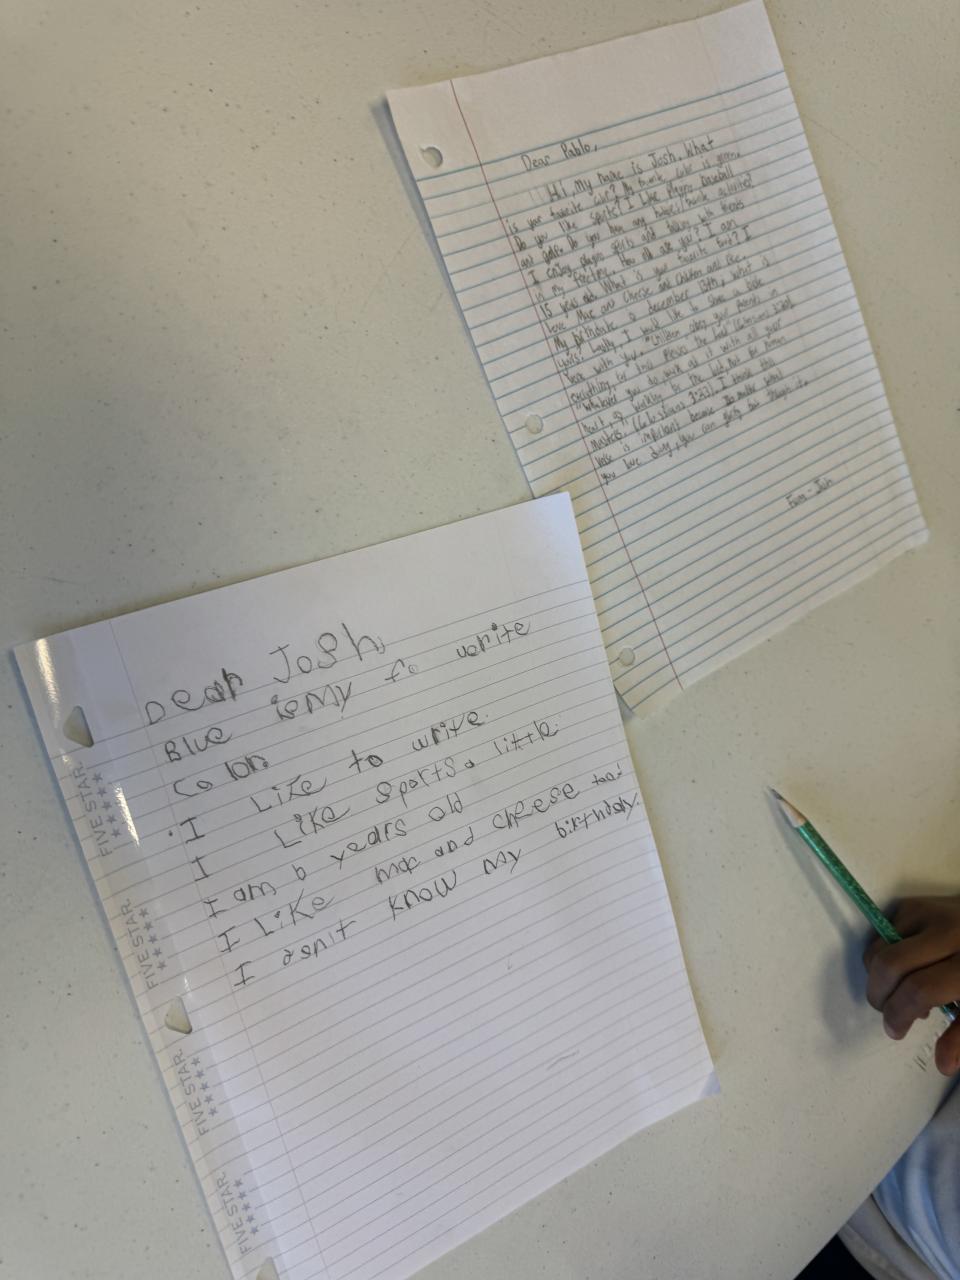 Dear Pablo,
Hi, My name is Josh. What
is your favorite color? My favorite color is green.
Do you like sports? I like Playing baseball
and golf. Do you have any hobbies/favorite activities?
I enjoy playing sports and talking with friends
in my free time. How old are you? I am
15 years old. What is your favorite food? I
love Mac and Cheese and Chicken and Rice.
My birthdate is december 13th, what is
yours? Lastly, I would like to share a bible
verse with you. "Children obey your parents in
everything, for this pleases the lord" (Colossians 3:20)
Whatever you do, work at it with all your
heart, as working for the lord, not for human
masters. (Colossians 3:23). I think this
verse is important because no matter what
you are doing, you can glorify him through it.
From - Josh
Dear Josh,
Blue is my fa vorite
Color.
I Like to write.
I Like sports a little.
I am 6 years old
I Like mac and cheese too!
I know my birthday.
FIVE STAR
FIVE STAR
FIVE STAR
FIVE STAR